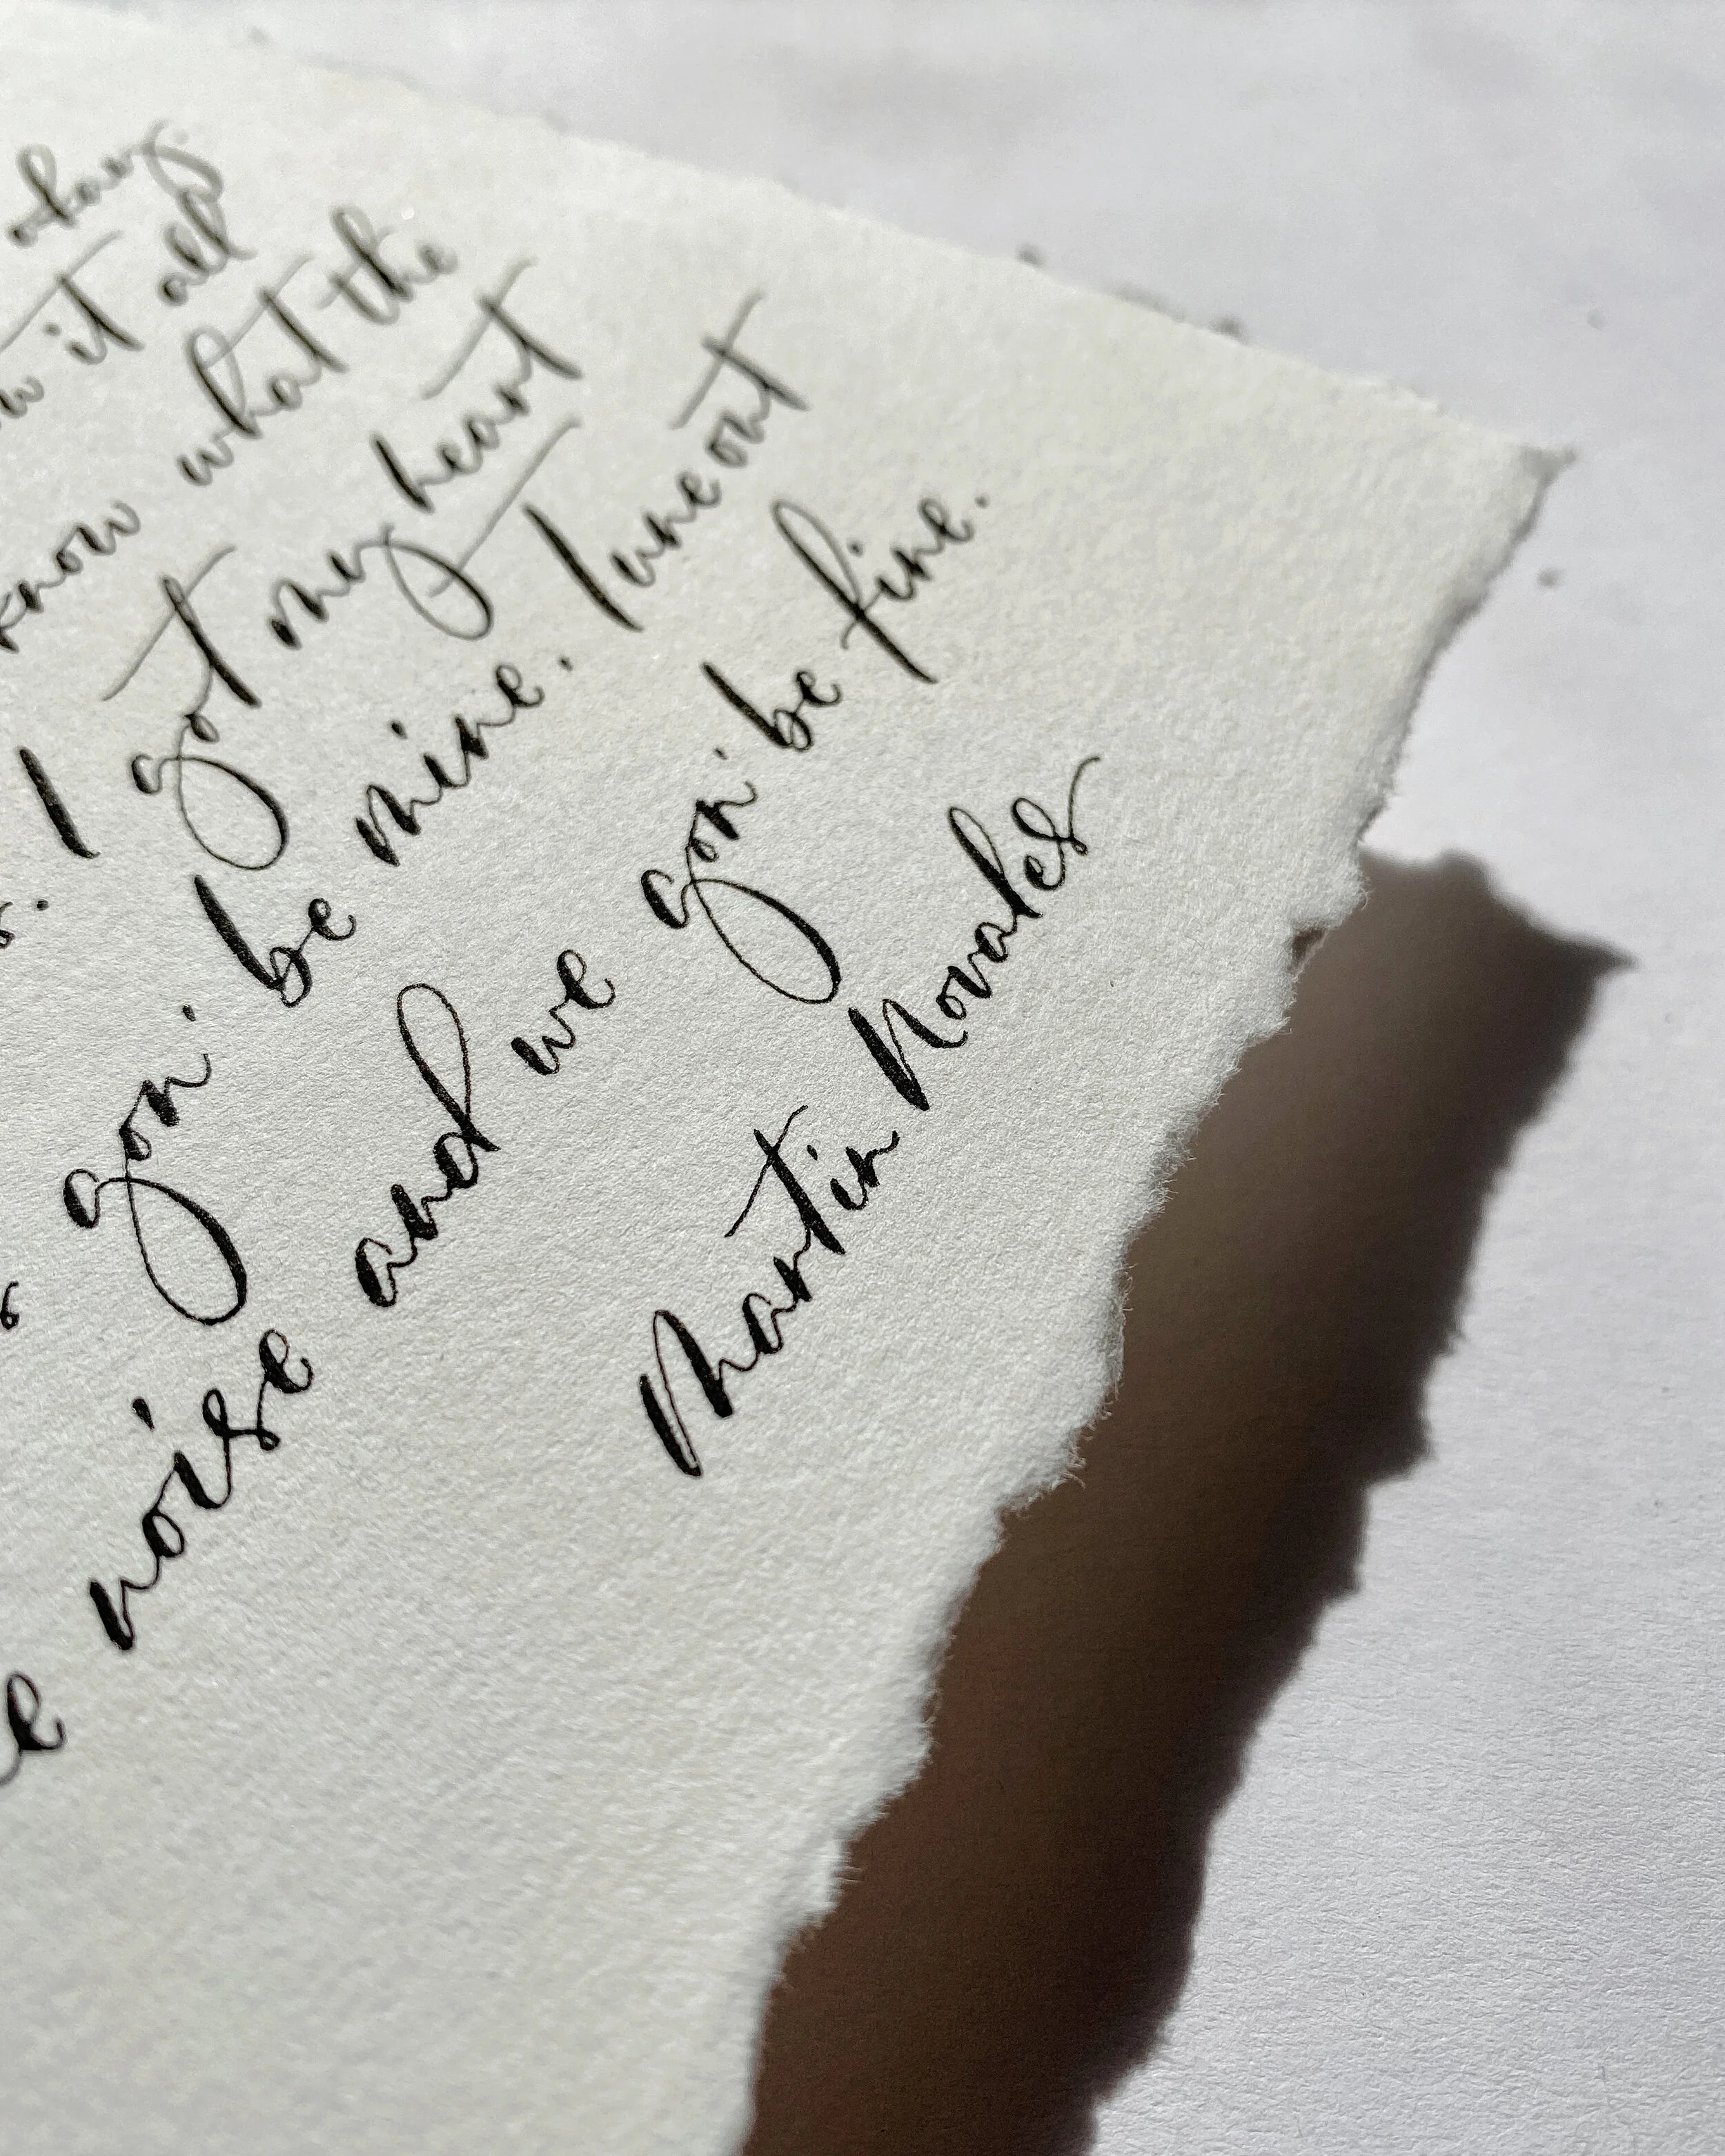 okay.
it all
know what the
I got my heart
gon' be mine. Tune out
noise and we gon' be fine.
Martin Novales